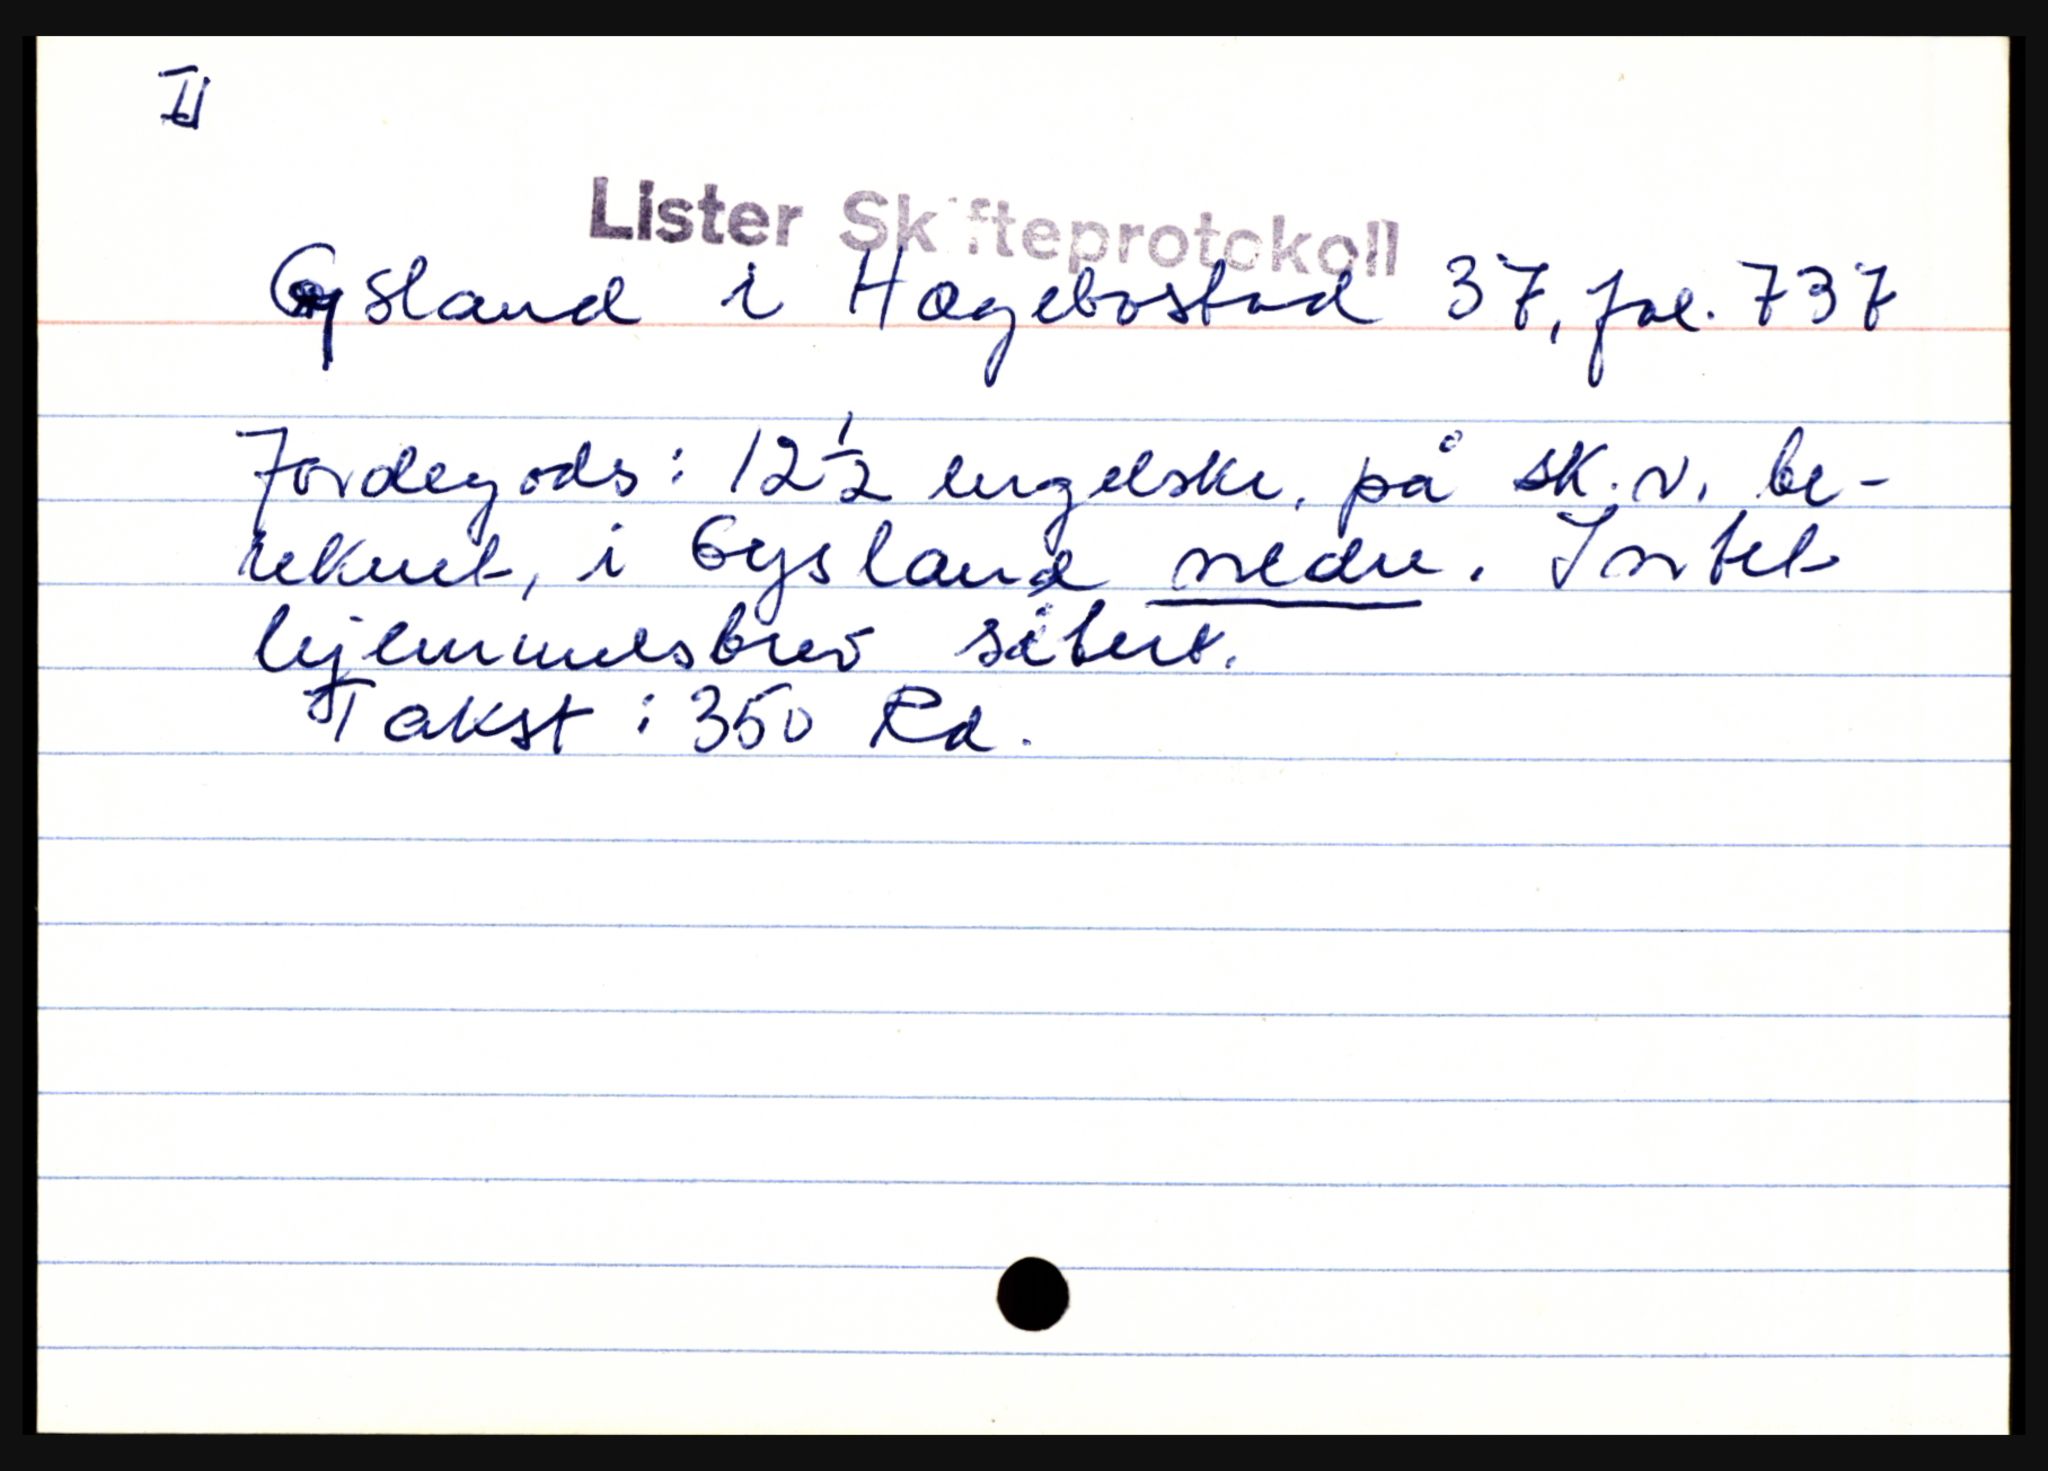 II
Lister Skifteprotokoll
Gysland i Hægebostad 37, fol. 737
Jordegods: 12½ engelske, på sk. v. be-
reknet, i Gysland nedre. Intet
hjemmelsbrev sitert.
Takst: 350 Rd.